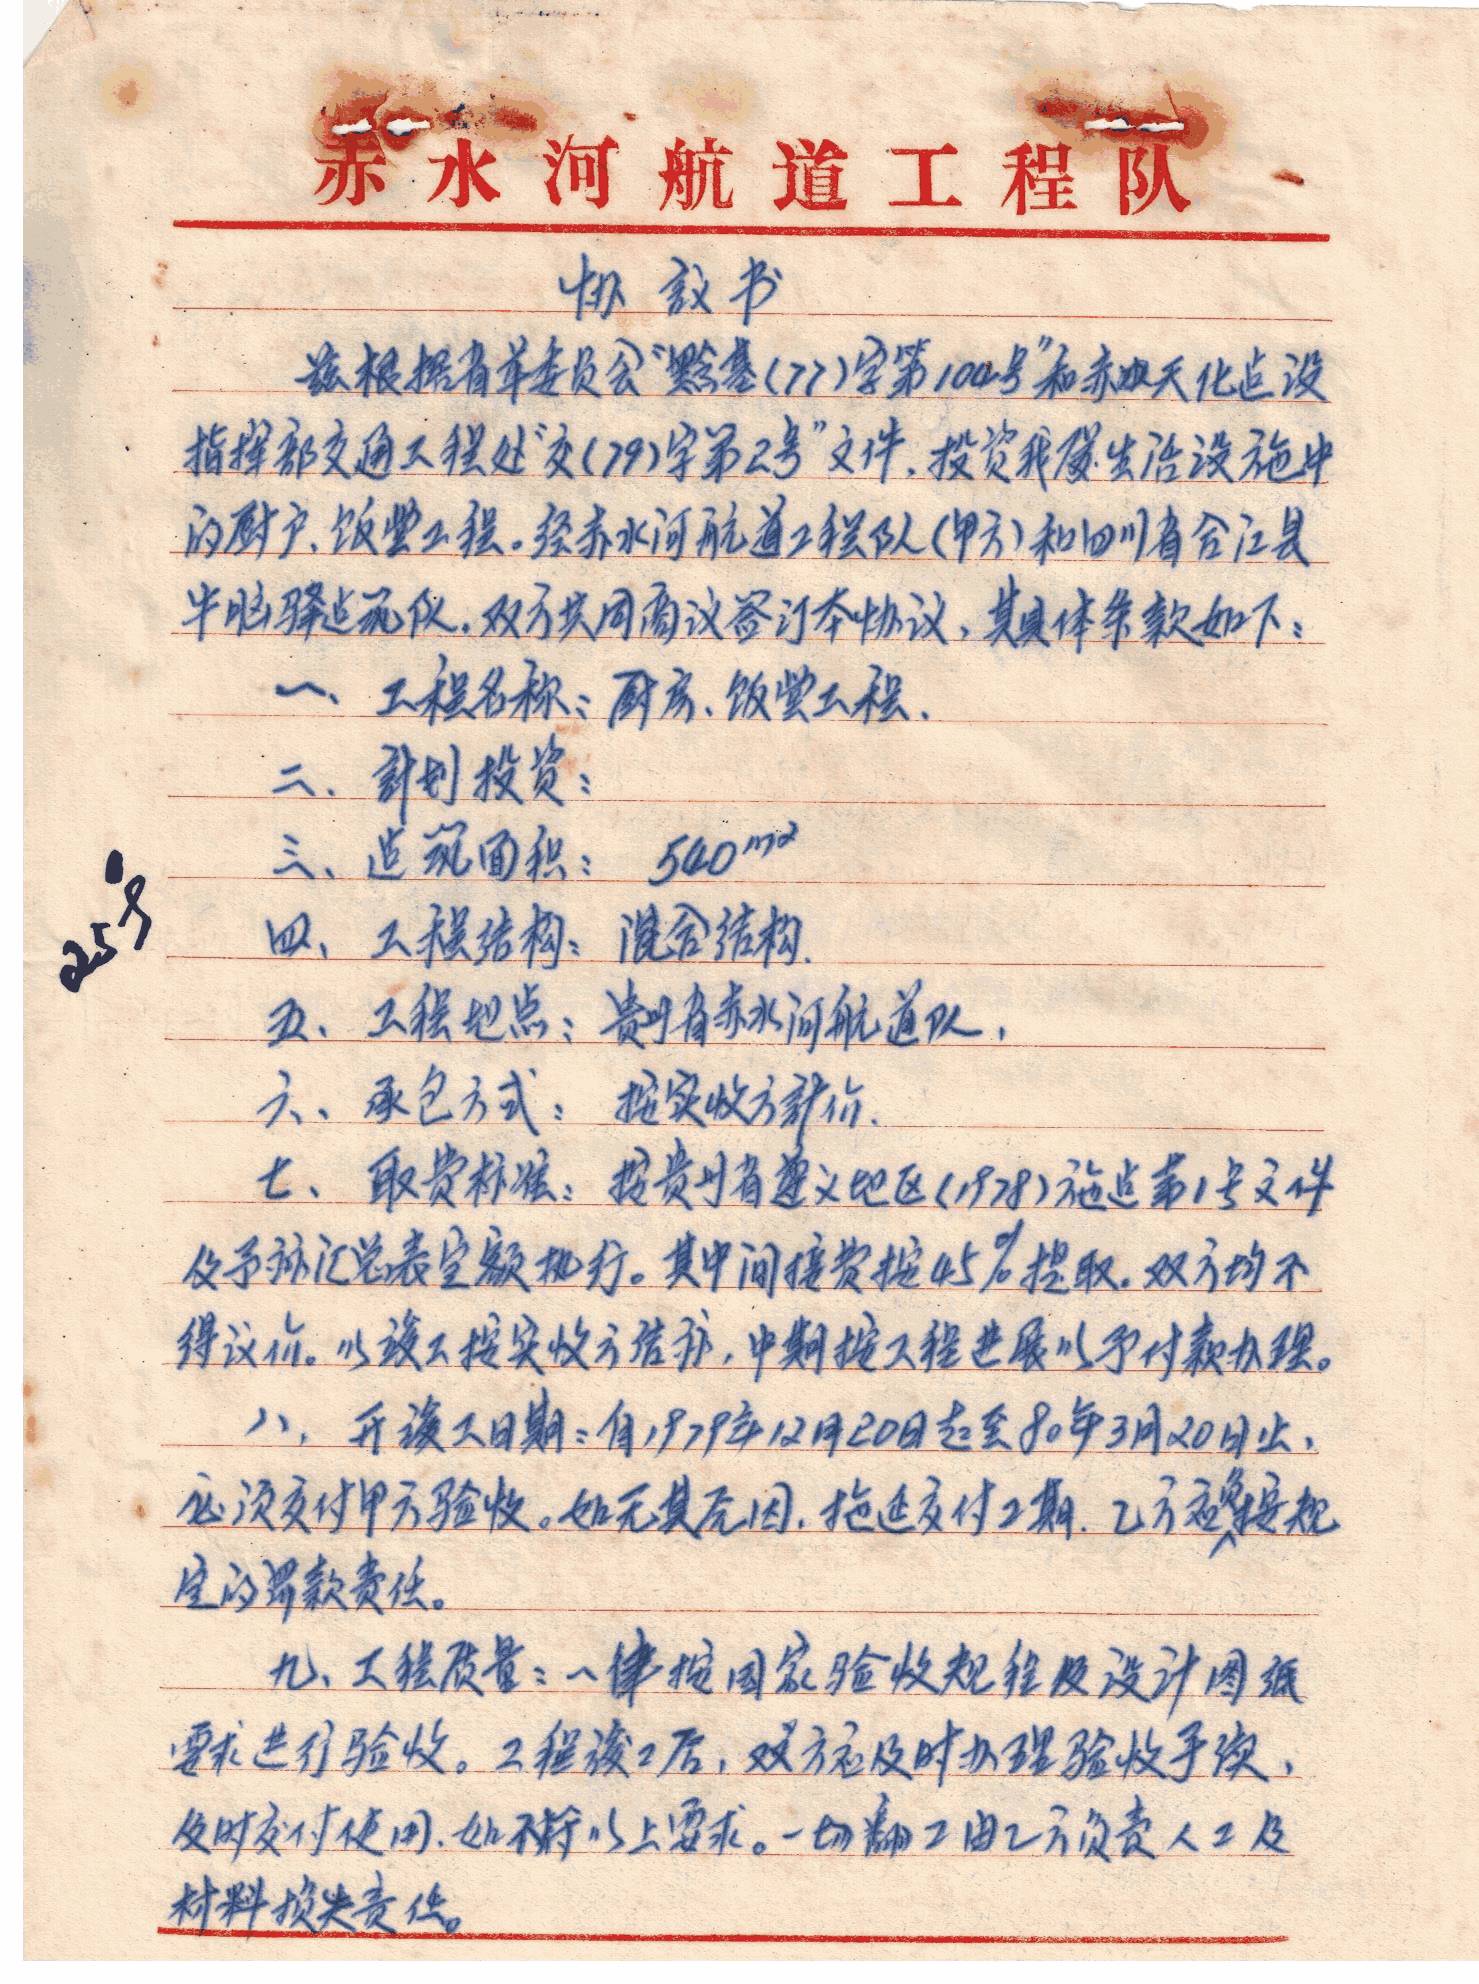 赤水河航道工程队
协议书
兹根据省革委员会“黔基(77)字第104号”和赤水天化建设
指挥部交通工程处“交(79)字第2号”文件，投资我队生活设施中
的厨户、饭堂工程。经赤水河航道工程队(甲方)和四川省合江县
牛脑驿建筑队。双方共同商议签订本协议，其具体条款如下：
一、工程名称：厨房、饭堂工程.
二、計划投资：
三、建筑面积： 540m2
四、工程结构：混合结构.
五、工程地点：贵州省赤水河航道队，
六、承包方式：按实收方計价.
七、取费标准：按贵州省遵义地区(1978)施建第1号文件
及予标汇总表定额执行。其中间接费按45%提取。双方均不
得议价。以竣工按实收方结标，中期按工程进展以予付款办理。
八、开竣工日期：自1979年12月20日起至80年3月20日止，
必须交付甲方验收。如无其原因，拖延交付工期.乙方应负按规
定的罚款责任。
九、工程质量：一律按国家验收规程及设计图纸
要求进行验收。工程竣工后，双方应及时办理验收手续，
及时交付使用.如不符以上要求。一切翻工由乙方负责人工及
材料损失责任。
25号